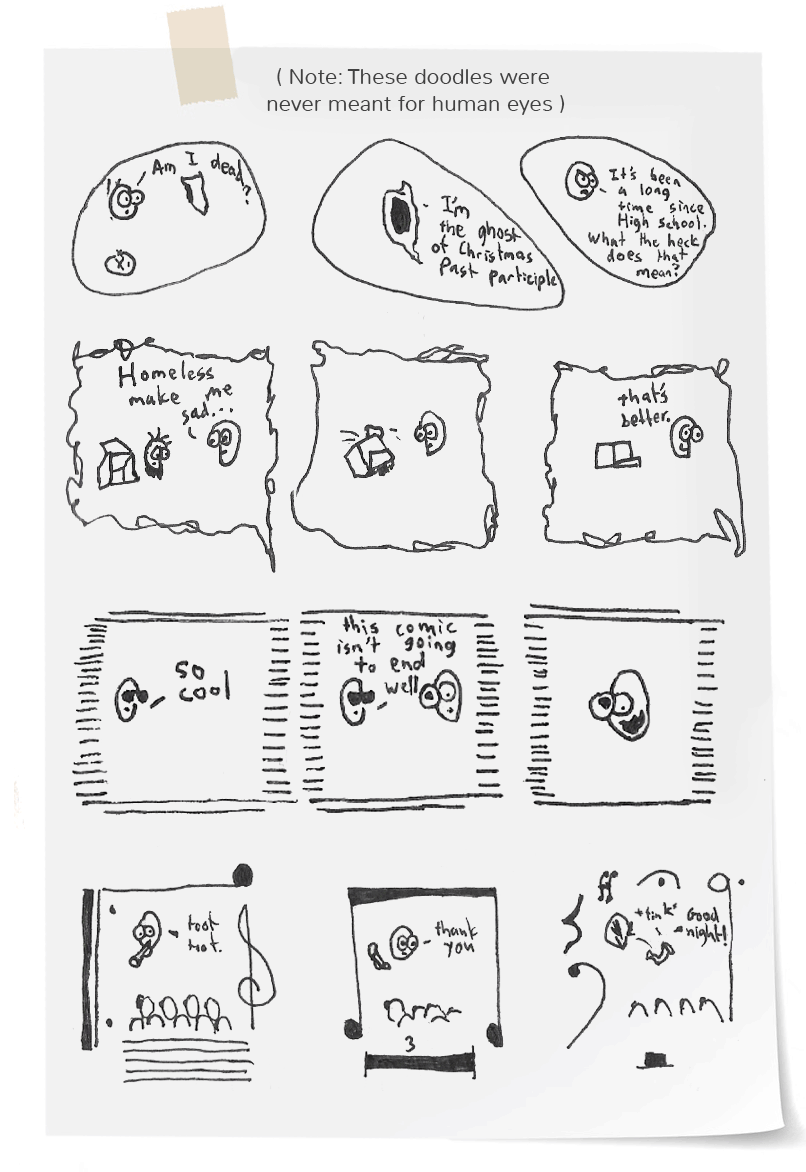 ( Note: These doodles were
never meant for human eyes )
Am I dead?
I'm
the ghost
of Christmas
Past Participle
It's been
a long
time since
High school.
What the heck
does that
mean?
Homeless
make me
sad...
that's
better.
so
cool
this comic
isn't going
to end
well
toot
toot.
thank
you
3
ff
*tink*
Good
night!